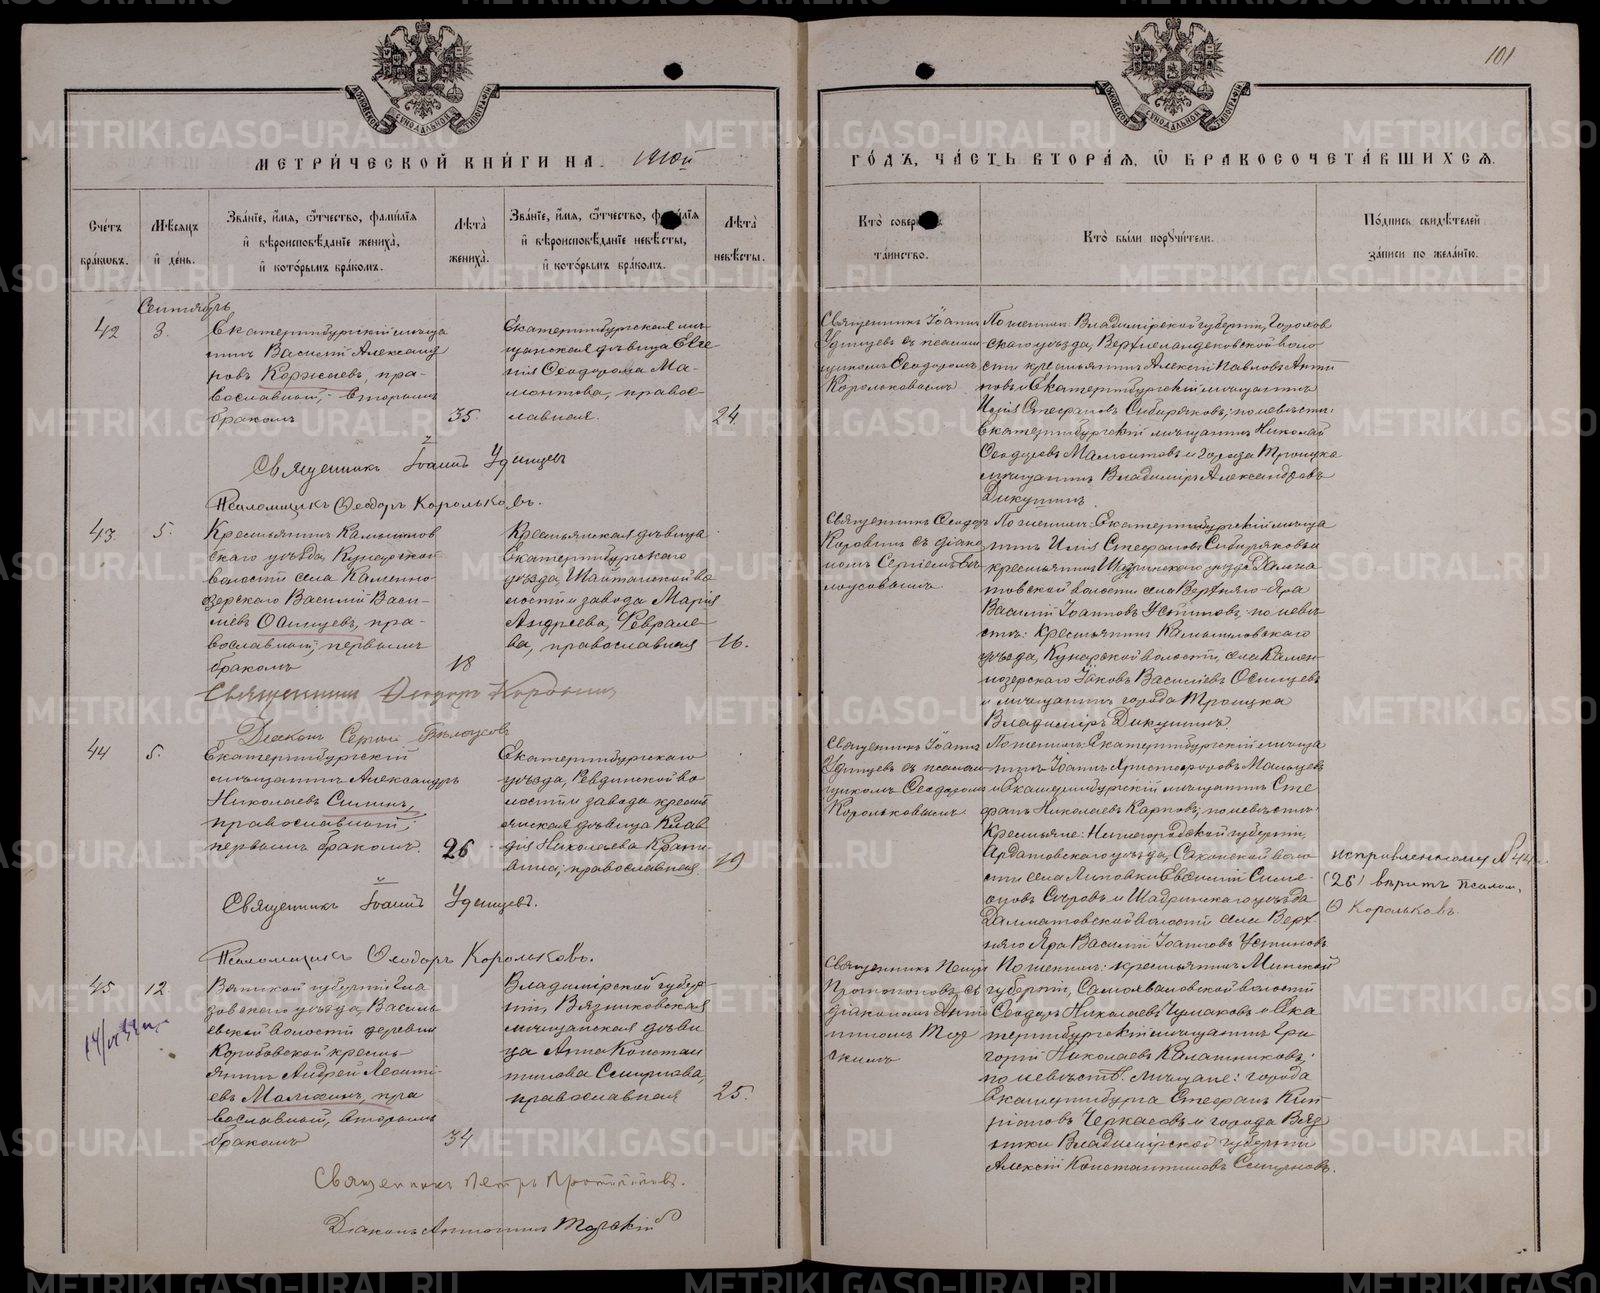 101
МЕТРИ́ЧЕСКОЙ КНИ́ГИ НА 1910й
ГО́ДЪ, ЧА́СТЬ ВТОРА́Я, Ѿ БРАКОСОЧЕТА́ВШИХСЯ.
Сче́тъ бра́ковъ.
Мѣ́сяцъ и де́нь.
Зва́нїе, и́мя, ѻ҆́тчество, фами́лїя
и҆ вѣроисповѣ́данїе жениха̀,
и҆ кото́рымъ бра́комъ.
Лѣ́та жениха̀.
Зва́нїе, и́мя, ѻ҆́тчество, фами́лїя
и҆ вѣроисповѣ́данїе невѣ́сты,
и҆ кото́рымъ бра́комъ.
Лѣ́та невѣ́сты.
Кто̀ соверша́лъ
та́инство.
Кто̀ бы́ли пору́чители.
По́дпись свидѣ́телей
за́писи по жела́нїю.
Сентябрь
42
3.
Екатеринбургскій мѣща
нинъ Василій Алексан
ровъ Коржаевъ, пра-
вославный, вторымъ
бракомъ
35.
Екатеринбургская мѣ-
щанская дѣвица Евге
нія Ѳеодорова Ма-
монтова, правос-
лавная.
24.
Священникъ Іоаннъ
Удинцевъ съ псалом
щикомъ Ѳеодоромъ
Корольковымъ
По женихѣ: Владимірской губерніи, Горохов
скаго уѣзда, Верхнеландеховской воло
сти крестьянинъ Алексій Павловъ Анти
повъ и Екатеринбургскій мѣщанинъ
Илія Стефановъ Сибиряковъ; по невѣстѣ:
Екатеринбургскій мѣщанинъ Николай
Ѳеодоровъ Мамонтовъ и города Троицка
мѣщанинъ Владиміръ Александровъ
Дикушинъ.
Священникъ Іоаннъ Удинцевъ
Псаломщикъ Ѳеодоръ Корольковъ.
43.
5.
Крестьянинъ Камышлов
скаго уѣзда, Кунарской
волости села Каменно-
озерскаго Василій Васи-
ліевъ Осинцевъ, пра-
вославный, первымъ
бракомъ
18
Крестьянская дѣвица
Екатеринбургскаго
уѣзда, Шайтанской во
лости и завода Марія
Андреева, Феврале-
ва, православная
16.
Священникъ Ѳеодоръ
Коровинъ съ діако
номъ Сергіемъ Бѣ
лоусовымъ
По женихѣ: Екатеринбургскій мѣща
нинъ Илія Стефановъ Сибиряковъ и
крестьянинъ Шадринскаго уѣзда Далма
товской волости села Верхняго-Яра
Василій Іоанновъ Устиновъ; по невѣ
стѣ: крестьянинъ Камышловскаго
уѣзда, Кунарской волости, села Камен-
ноозерскаго Іаковъ Василіевъ Осинцевъ
и мѣщанинъ города Троицка
Владиміръ Дикушинъ.
Священникъ Ѳеодоръ Коровинъ
Діаконъ Сергій Бѣлоусовъ
44
5.
Екатеринбургскій
мѣщанинъ Александръ
Николаевъ Силинъ,
православный,
первымъ бракомъ.
26
Екатеринбургскаго
уѣзда, Ревдинской во
лости и завода крест
янская дѣвица Клав
дія Николаева Крапи
вина; православная
19
Священникъ Іоаннъ
Удинцевъ съ псалом
щикомъ Ѳеодоромъ
Корольковымъ
По женихѣ: Екатеринбургскій мѣща
нинъ Іоаннъ Христофоровъ Мальцевъ
и Екатеринбургскій мѣщанинъ Сте
фанъ Николаевъ Карповъ; по невѣстѣ:
Крестьяне: Нижегородской губерніи,
Ардатовскаго уѣзда, Саконской воло
сти села Липовки Евѳимій Симе-
оновъ Сыровъ и Шадринскаго уѣзда
Далматовской волости села Верх
няго Яра Василій Іоанновъ Устиновъ.
исправленному № 44
(26) вѣритъ псалом.
Ѳ Корольковъ.
Священникъ Іоаннъ Удинцевъ.
Псаломщикъ Ѳеодоръ Корольковъ.
45
12.
Вятской губерніи Гла
зовскаго уѣзда, Василь
евской волости деревни
Коробовской кресть-
янинъ Андрей Леонті
евъ Малхинъ, пра
вославный, вторымъ
бракомъ
34
Владимірской губер-
ніи, Вязниковская
мѣщанская дѣви
ца Анна Констан
тинова Смирнова,
православная
25.
Священникъ Петръ
Протопоповъ съ
діакономъ Анто
ниномъ Тор
скимъ
По женихѣ: крестьянинъ Минской
губерніи, Самохваловской волости
Ѳеодоръ Николаевъ Чумаковъ и Ека
теринбургскій мѣщанинъ Гри
горій Николаевъ Калашниковъ;
по невѣстѣ: мѣщане: города
Екатеринбурга Стефанъ Кип-
ріановъ Черкасовъ и города Вяз
ники Владимірской губерніи
Алексій Константиновъ Смирновъ.
Священникъ Петръ Протопоповъ.
Діаконъ Антонинъ Торскій